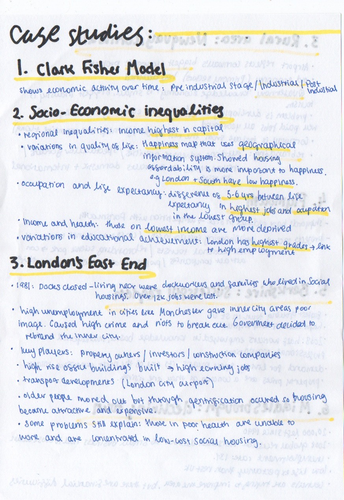 Case studies:
1. Clark Fisher Model
shows economic activity over time: Pre industrial stage/Industrial/Post
Industrial
2. Socio-Economic inequalities
• regional inequalities: Income highest in capital
• variations in quality of life: Happiness map that uses geographical
information system showed housing
affordability is more important to happiness.
eg London + South have low happiness.
• occupation and life expectancy: difference of 5-6 yrs between life
expectancy in highest jobs and
in the lowest group.
• Income and health: those on lowest income are more deprived
• variations in educational achievement: London has highest grades + link
to high employment
3. London's East End
• 1981: Docks closed - living near were dockworkers and families who lived in Social
housings. Over 12k jobs were lost.
• high unemployment in cities like Manchester gave inner city areas poor
image. Caused high crime and riots to break out. Government decided to
rebrand the inner city.
• key players: Property owners / investors / construction companies
• high rise office buildings built → high earning jobs
• transport developments (London city airports)
• older people moved out but through gentrification occured so housing
became attractive and expensive.
• Some problems still explain: those in poor health are unable to
work and are concentrated in low-cost social housing.